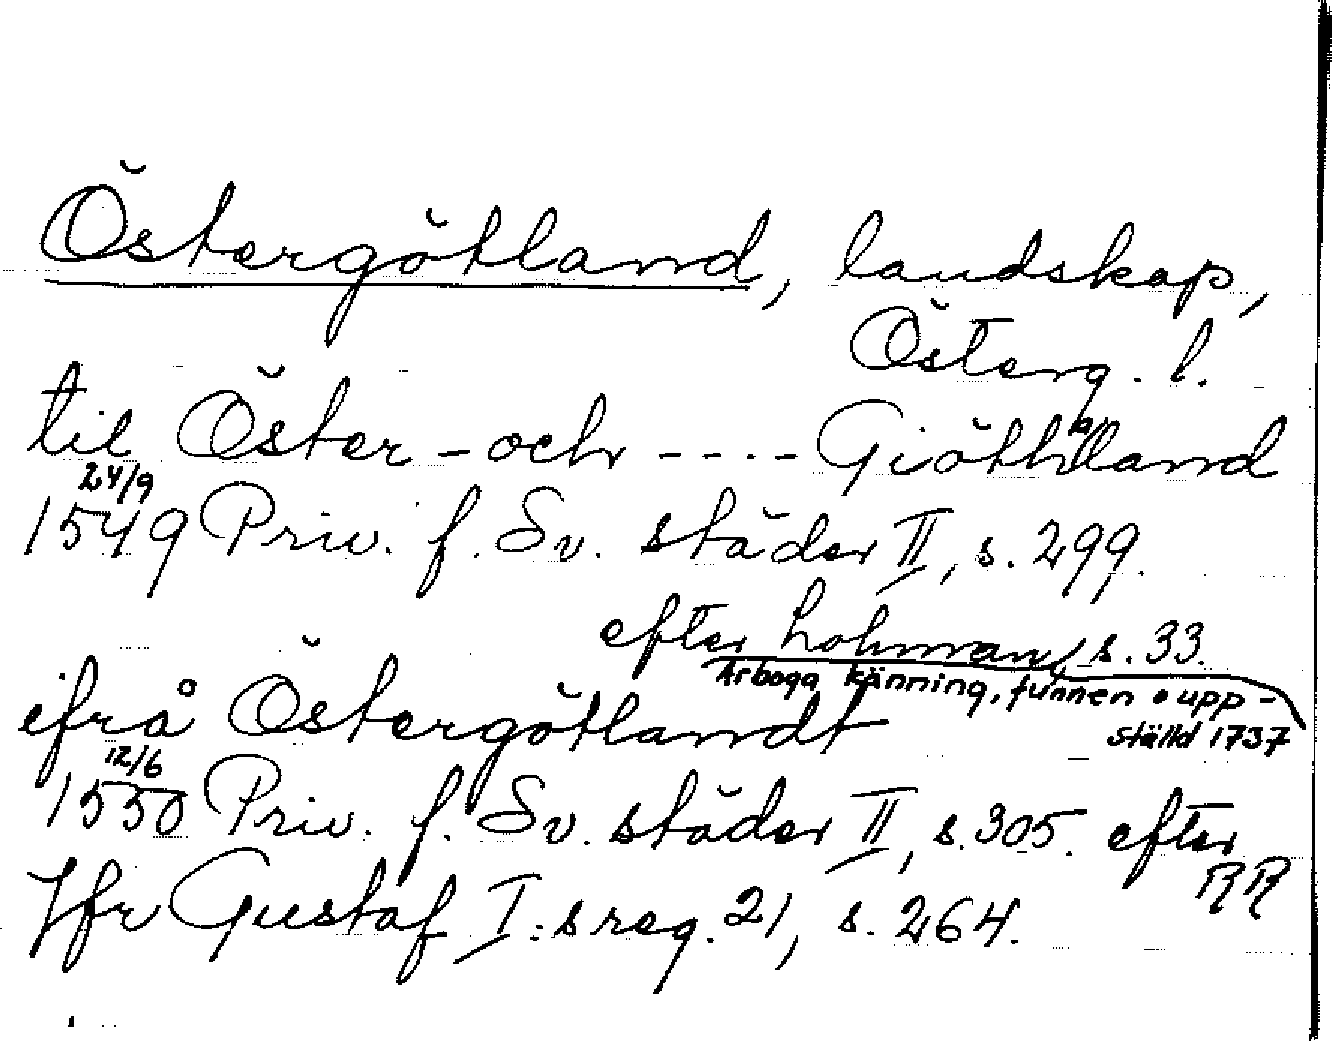 Östergötland, landskap,
Österg. l.
til Öster - och - - - - Giöthaland
24/9
1549 Priv. f. Sv. städer II, s. 299.
efter Lohman, s. 33.
Arboga känning, funnen o upp-
ställd 1737
ifrå Östergötlandt
12/6
1550 Priv. f. Sv. städer II, s. 305. efter
RR
Jfr Gustaf I:s reg. 21, s. 264.